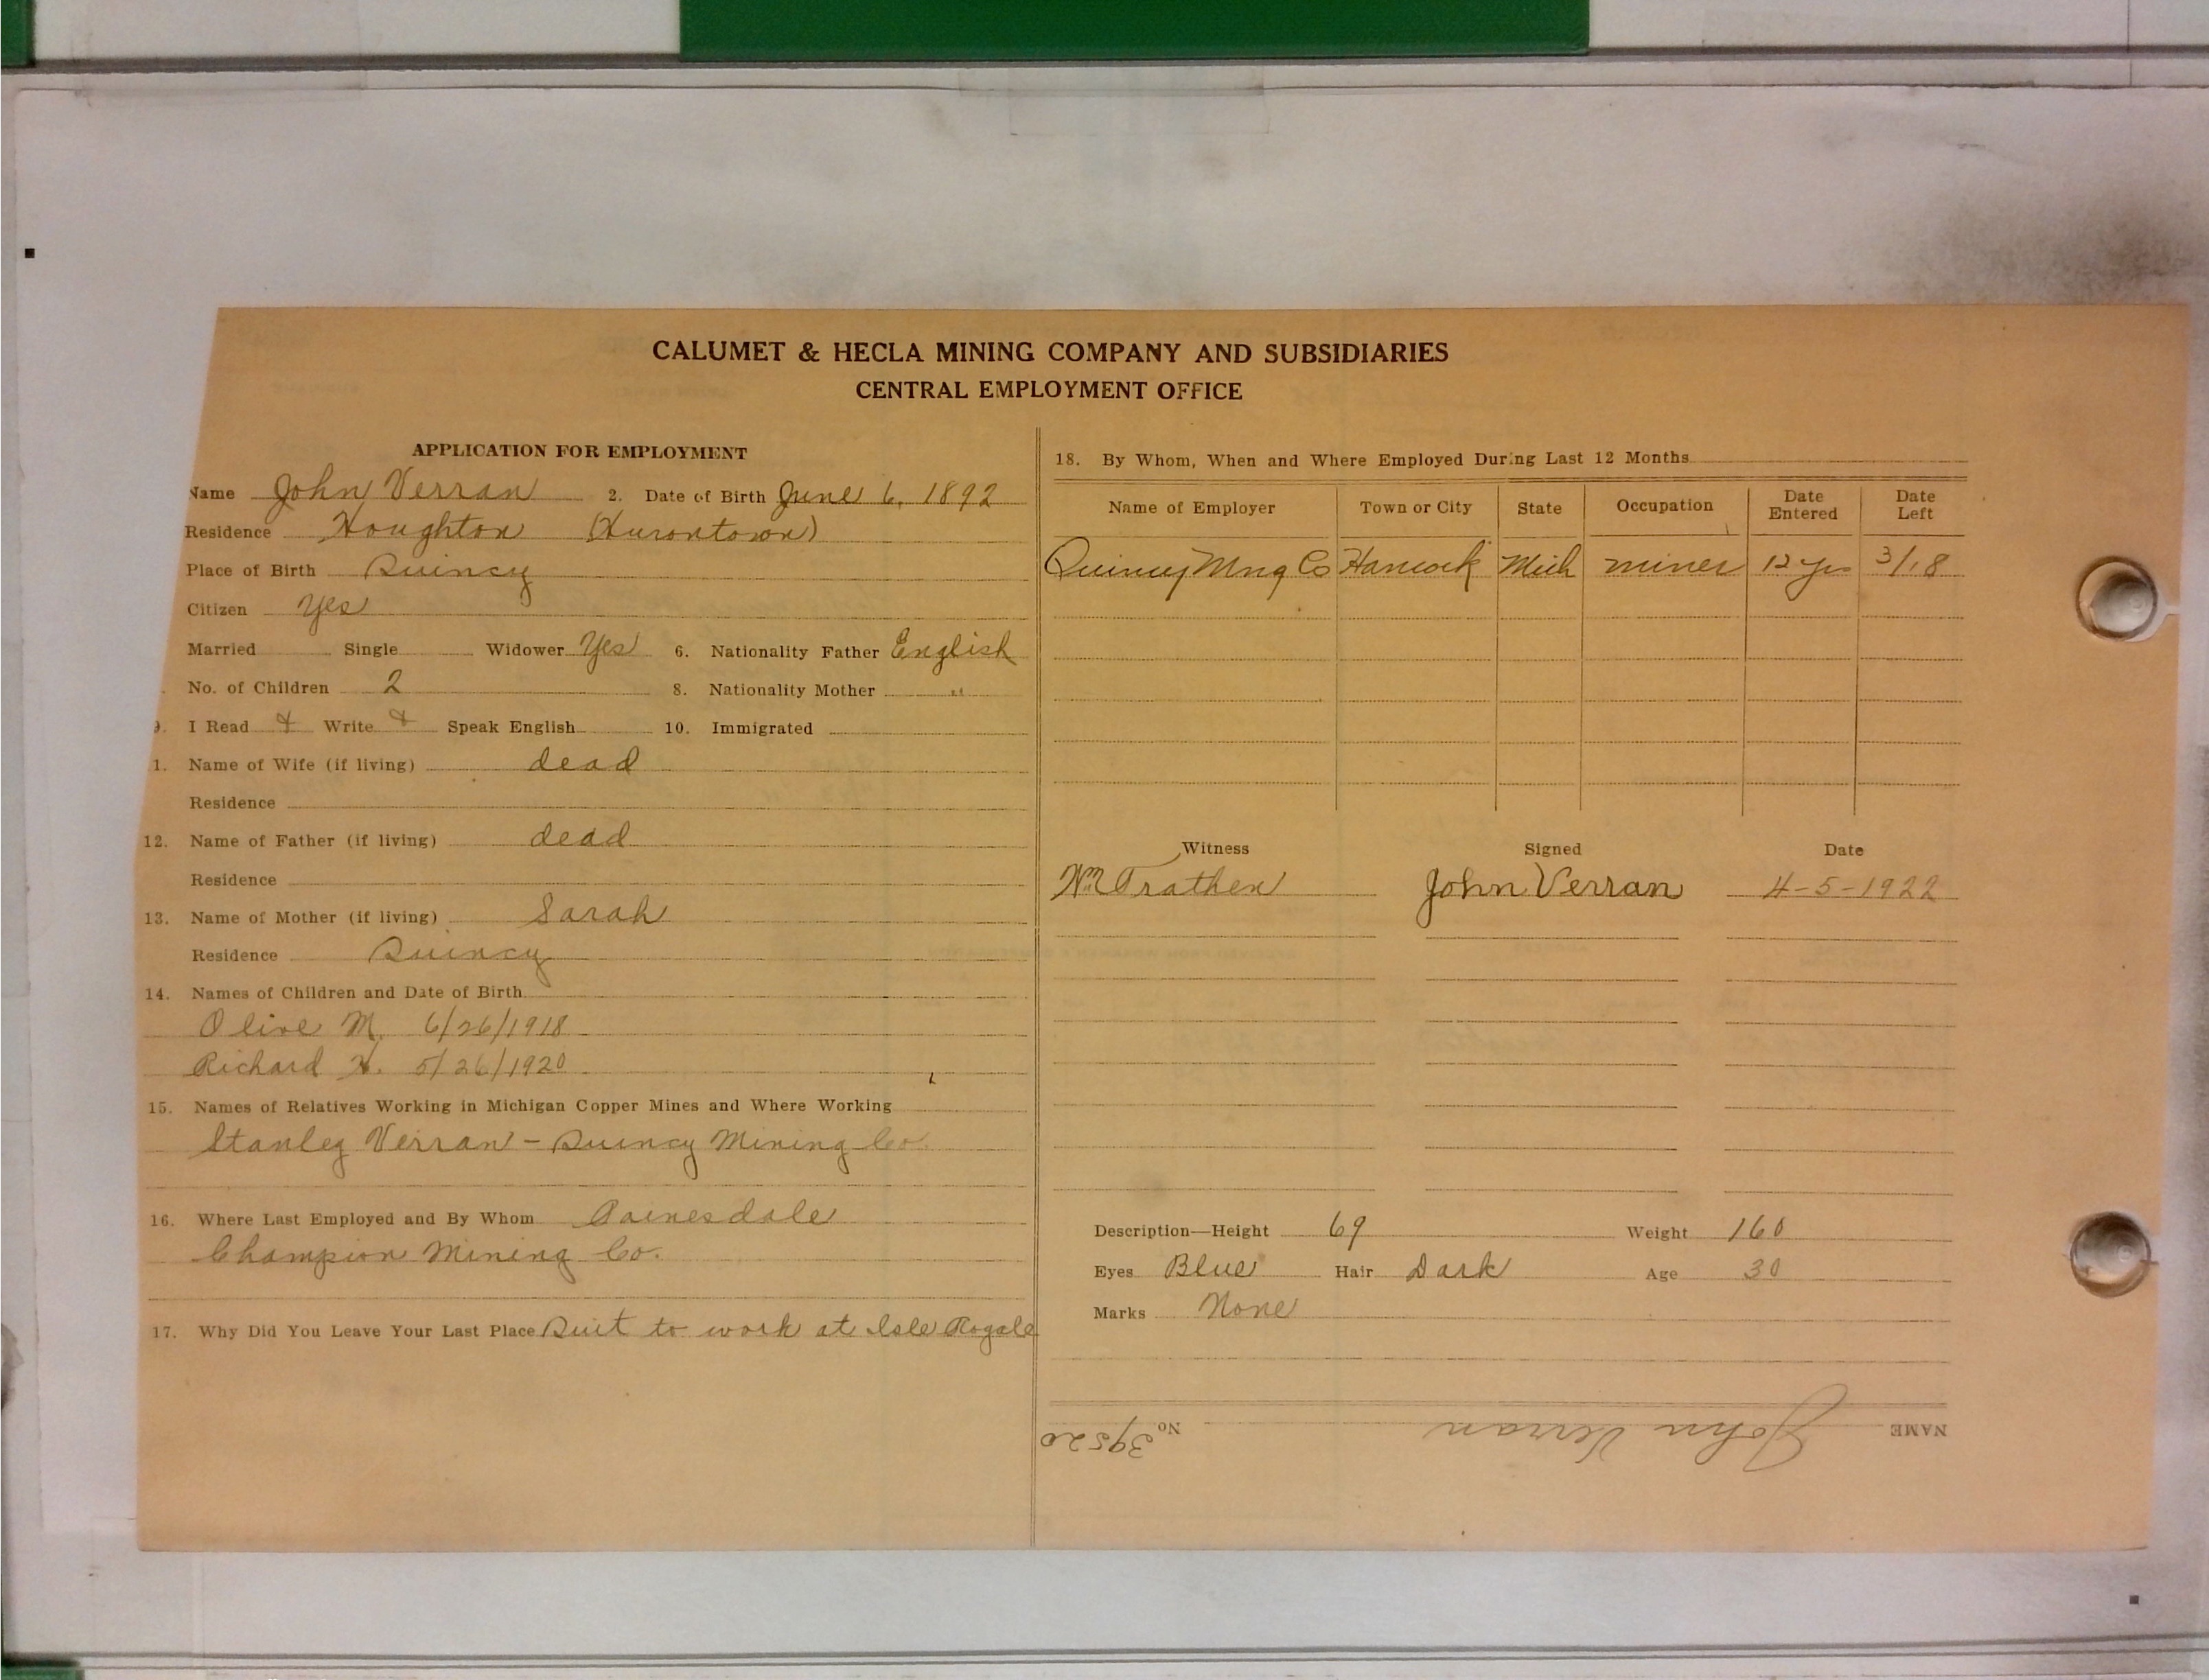 CALUMET & HECLA MINING COMPANY AND SUBSIDIARIES
CENTRAL EMPLOYMENT OFFICE
APPLICATION FOR EMPLOYMENT
Name John Verran 2. Date of Birth June 6, 1892
Residence Houghton (Hurontown)
Place of Birth Quincy
Citizen Yes
Married Single Widower Yes 6. Nationality Father English
No. of Children 2 8. Nationality Mother "
9. I Read & Write & Speak English 10. Immigrated
1. Name of Wife (if living) dead
Residence
12. Name of Father (if living) dead
Residence
13. Name of Mother (if living) Sarah
Residence Quincy
14. Names of Children and Date of Birth
Olive M. 6/26/1918
Richard H. 5/26/1920
15. Names of Relatives Working in Michigan Copper Mines and Where Working
Stanley Verran - Quincy Mining Co.
16. Where Last Employed and By Whom Painesdale
Champion Mining Co.
17. Why Did You Leave Your Last Place Quit to work at Isle Royale
18. By Whom, When and Where Employed During Last 12 Months
Name of Employer Town or City State Occupation Date Entered Date Left
Quincy Mng Co Hancock Mich miner 12 yrs 3/18
Witness Signed Date
Wm Trathen John Verran 4-5-1922
Description—Height 69 Weight 160
Eyes Blue Hair Dark Age 30
Marks None
NAME John Verran No. 39520